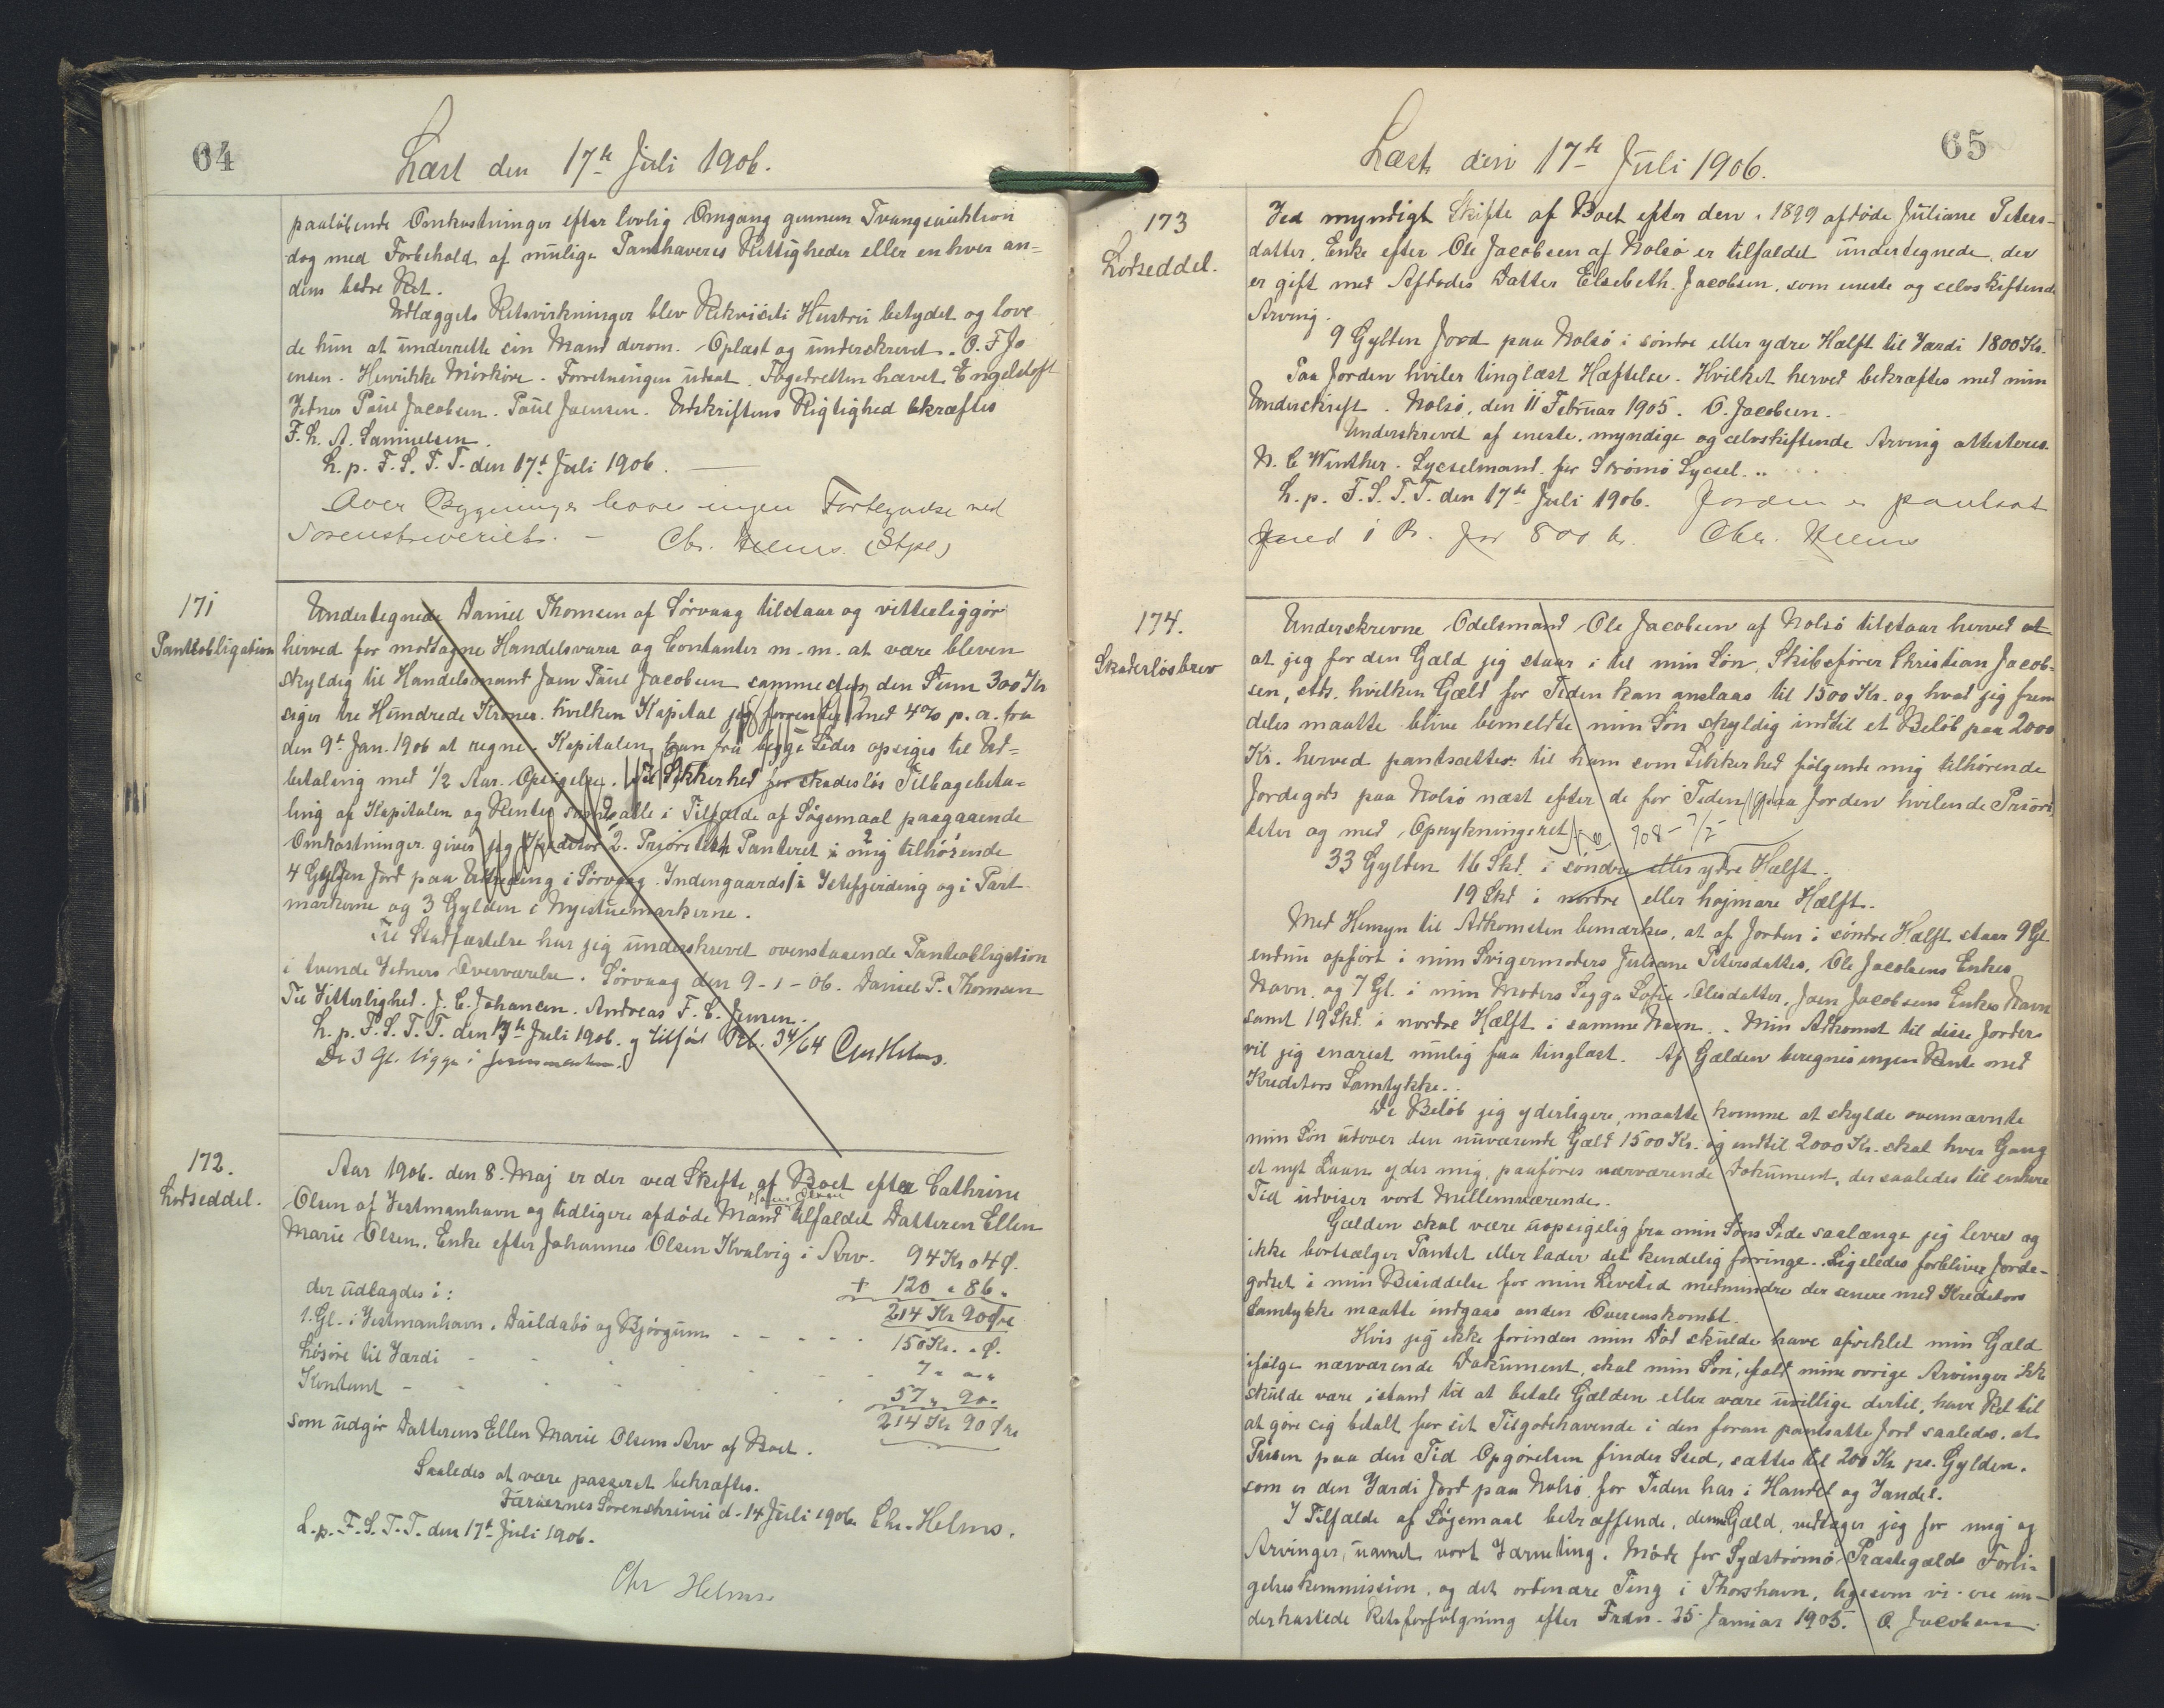 64
Læst den 17de Juli 1906.
paaløbende Omkostninger efter lovlig Omgang gennem Tvangsauktion
dog med Forbehold af mulige Panthaveres Rettigheder eller enhver an=
dens bedre Ret.
Udlæggets Retsvirkninger blev Rekvisiti Hustru betydet og love
de hun at underrette sin Mand derom. Oplæst og underskrevet. O. F Jo
ensen. Henrikke Mörköre. Forretningen udsat. Fogedretten hævet. Engelstoft
Vidner Poül Jacobsen. Poül Joensen. Udskriftens Rigtighed bekræftes
F. L. A. Samuelsen.
L. p. F. S. T. T. den 17de Juli 1906.
Over Bygninger haves ingen Fortegnelse ved
Sorenskriveriet. - Chr. Helms (Stpl)
171
Pantobligation
Undertegnede Daniel Thomsen af Sörvaag tilstaar og vitterliggör
herved for modtagne Handelsvarer og Contanter m. m. at være bleven
skyldig til Handelsmand Joen Poül Jacobsen sammesteds den Sum 300 Kr
siger tre Hundrede Kroner. Hvilken Kapital jeg forrenter med 4% p. a. fra
den 9de Jan. 1906 at regne. Kapitalen kan fra begge Sider opsiges til Ud=
betaling med 1/2 Aar. Opsigelse. Til Sikkerhed for skadesløs Tilbagebeta=
ling af Kapitalen og Renter samt alle i Tilfælde af Søgsmaal paagaaende
Omkostninger giver jeg Kreditor 2. Prioritets Panteret i mig tilhørende
4 Gylden Jord paa i Sörvaag Indengaards i Vestfjerding og i Part
markerne og 3 Gylden i Nyestuemarkerne.
Til Stadfæstelse har jeg underskrevet ovenstaaende Panteobligation
i tvende Vidners Overværelse. Sörvaag den 9-1-06. Daniel P. Thomsen
Til Vitterlighed. J. C. Johansen. Andreas F. C. Jensen.
L. p. F. S. T. T. den 17de Juli 1906. g tilført Pb. 34/64 Chr Helms.
De 3 Gl. ligge i
172.
Lodseddel.
Aar 1906. den 8. Maj er der ved Skifte af Boet efter Cathrine
Olsen af Vestmanhavn og tidligere afdøde Mand Hans Olsen tilfaldet Datteren Ellen
Marie Olsen, Enke efter Johannes Olsen Kvalvig i Arv. 94 Kr 04 Ø.
+ 120 " 86 "
der udlagdes i: 214 Kr 90 Øre
1. Gl. i Vestmanhavn, Daildabø og Bjørgum - - - - - 150 Kr. " Ø.
Løsøre til Værdi - - - - 7 " " "
Kontant - - - - 57 " 90 "
214 Kr 90 Øre
som udgør Datterens Ellen Marie Olsens Arv af Boet.
Saaledes at være passeret bekræftes.
Færøernes Sorenskriveri d. 14 Juli 1906. Chr. Helms.
L. p. F. S. T. T. den 17de Juli 1906.
Chr Helms.
65
Læst den 17de Juli 1906.
173
Lodseddel.
Ved myndigt Skifte af Boet efter den i 1899 afdøde Juliane Peters=
datter, Enke efter Ole Jacobsen af Nolsö er tilfaldet undertegnede, der
er gift med Afdødes Datter Elsebeth Jacobsen, som eneste og selvskiftende
Arving.
9 Gylden Jord paa Nolsö i søndre eller ydre Hælft til Værdi 1800 Kr.
Paa Jorden hviler tinglæst Hæftelse. Hvilket herved bekræftes med min
Underskrift. Nolsö, den 11 Februar 1905. O. Jacobsen.
Underskrevet af eneste, myndige og selvskiftende Arving attesteres.
N. C Winther. Sysselmand for Strömö Syssel.
L. p. F. S. T. T. den 17de Juli 1906. Jorden er pantsat
med i Pr. for 800 kr. Chr. Helms
174.
Skadesløsbrev
Underskrevne Odelsmand Ole Jacobsen af Nolsö tilstaar herved at
at jeg for den Gæld jeg staar i til min Søn, Skibsfører Christian Jacob=
sen, stds. hvilken Gæld for Tiden kan anslaas til 1500 Kr. og hvad jeg frem
deles maatte blive bemeldte min Søn skyldig indtil et Beløb paa 2000
Kr. herved pantsætter til ham som Sikkerhed følgende mig tilhørende
Jordegods paa Nolsö næst efter de for Tiden paa Jorden hvilende Priori
teter og med Oprykningsret
33 Gylden 16 Skd. i søndre eller ydre Hælft.
19 Skd i nordre eller højmare Hælft.
Med Hensyn til Adkomsten bemærkes, at af Jorden i søndre Hælft staar 9 Gl.
endnu opført i min Svigermoders Juliane Petersdatter, Ole Jacobsens Enkes
Navn og 7 Gl. i min Moders Sigga Sofie Olesdatter, Joen Jacobsens Enkes Navn
samt 19 Skd. i nordre Hælft i samme Navn. Min Adkomst til disse Jorder
vil jeg snarest mulig faa tinglæst. Af Gælden beregnes ingen Rente med
Kreditors Samtykke.
De Beløb jeg yderligere maatte komme at skylde ovennævnte
min Søn udover den nuværende Gæld 1500 Kr. og indtil 2000 Kr. skal hver Gang
et nyt Laan ydes mig, paaføres nærværende Dokument, der saaledes til enhver
Tid udviser vort Mellemværende.
Gælden skal være uopsigelig fra min Søns Side saalænge jeg lever og
ikke bortsælger Pantet eller lader det kendelig forringe. Ligeledes forbliver Jorde-
godset i min Besiddelse for min Levetid medmindre der senere med Kreditors
Samtykke maatte indgaas anden Overenskomst.
Hvis jeg ikke forinden min Død skulde have afviklet min Gæld
ifølge nærværende Dokument, skal min Søn, ifald mine øvrige Arvinger ikke
skulde være istand til at betale Gælden eller være uvillige dertil, have Ret til
at gøre sig betalt for sit Tilgodehavende i den foran pantsatte Jord saaledes, at
Prisen paa den Tid Opgørelsen finder Sted, sættes til 200 Kr. pr. Gylden.
som er den Værdi Jord paa Nolsö for Tiden har i Handel og Vandel.
I Tilfælde af Søgsmaal betræffende denne Gæld, vedtager jeg for mig og
Arvinger, uanset vort Værneting, Møde for Sydströmö Præstegælds Forli=
gelseskommission, og det ordinære Ting i Thorshavn, ligesom vi ere un-
derkastede Retsforfølgning efter Frdn. 25. Januar 1905. O. Jacobsen